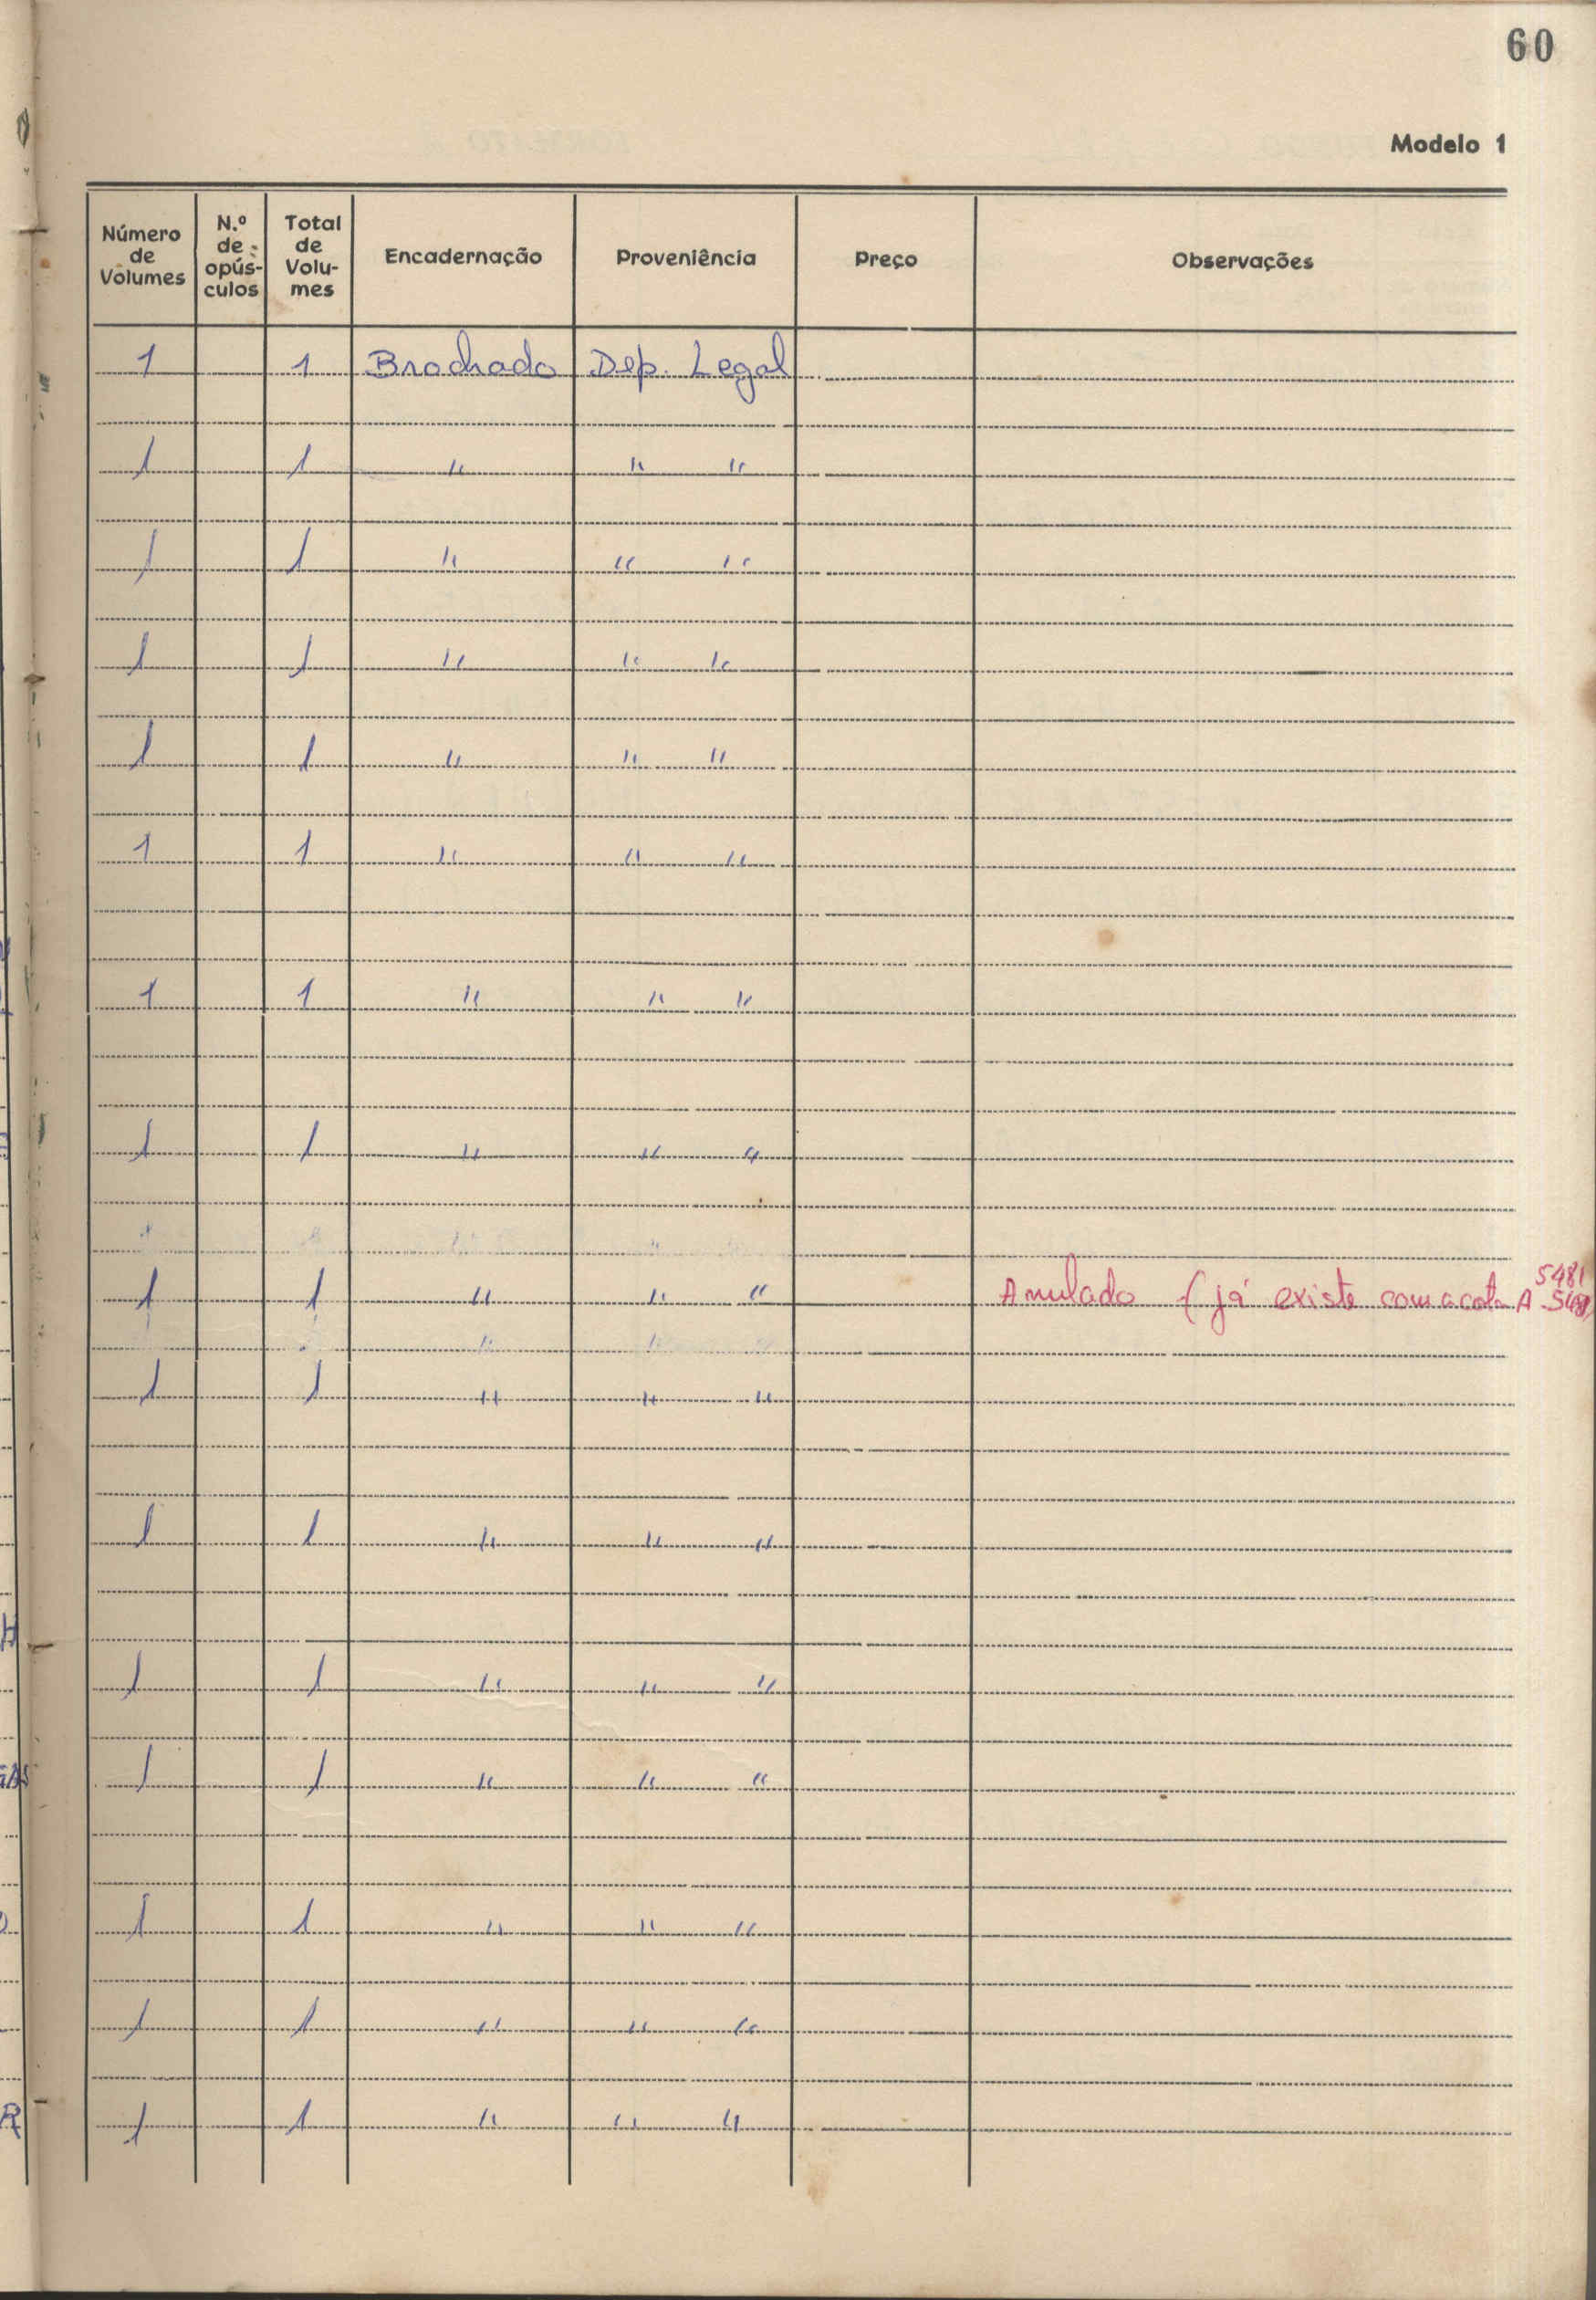 60
Modelo 1
Número de Volumes N.º de opús- culos Total de Volu- mes Encadernação Proveniência Preço Observações
1 1 Brochado Dep. Legal
1 1 " " "
1 1 " " "
1 1 " " "
1 1 " " "
1 1 " " "
1 1 " " "
1 1 " " "
5481
1 1 " " " Anulado (já existe com a cota A
1 1 " " "
1 1 " " "
1 1 " " "
1 1 " " "
1 1 " " "
1 1 " " "
1 1 " " "